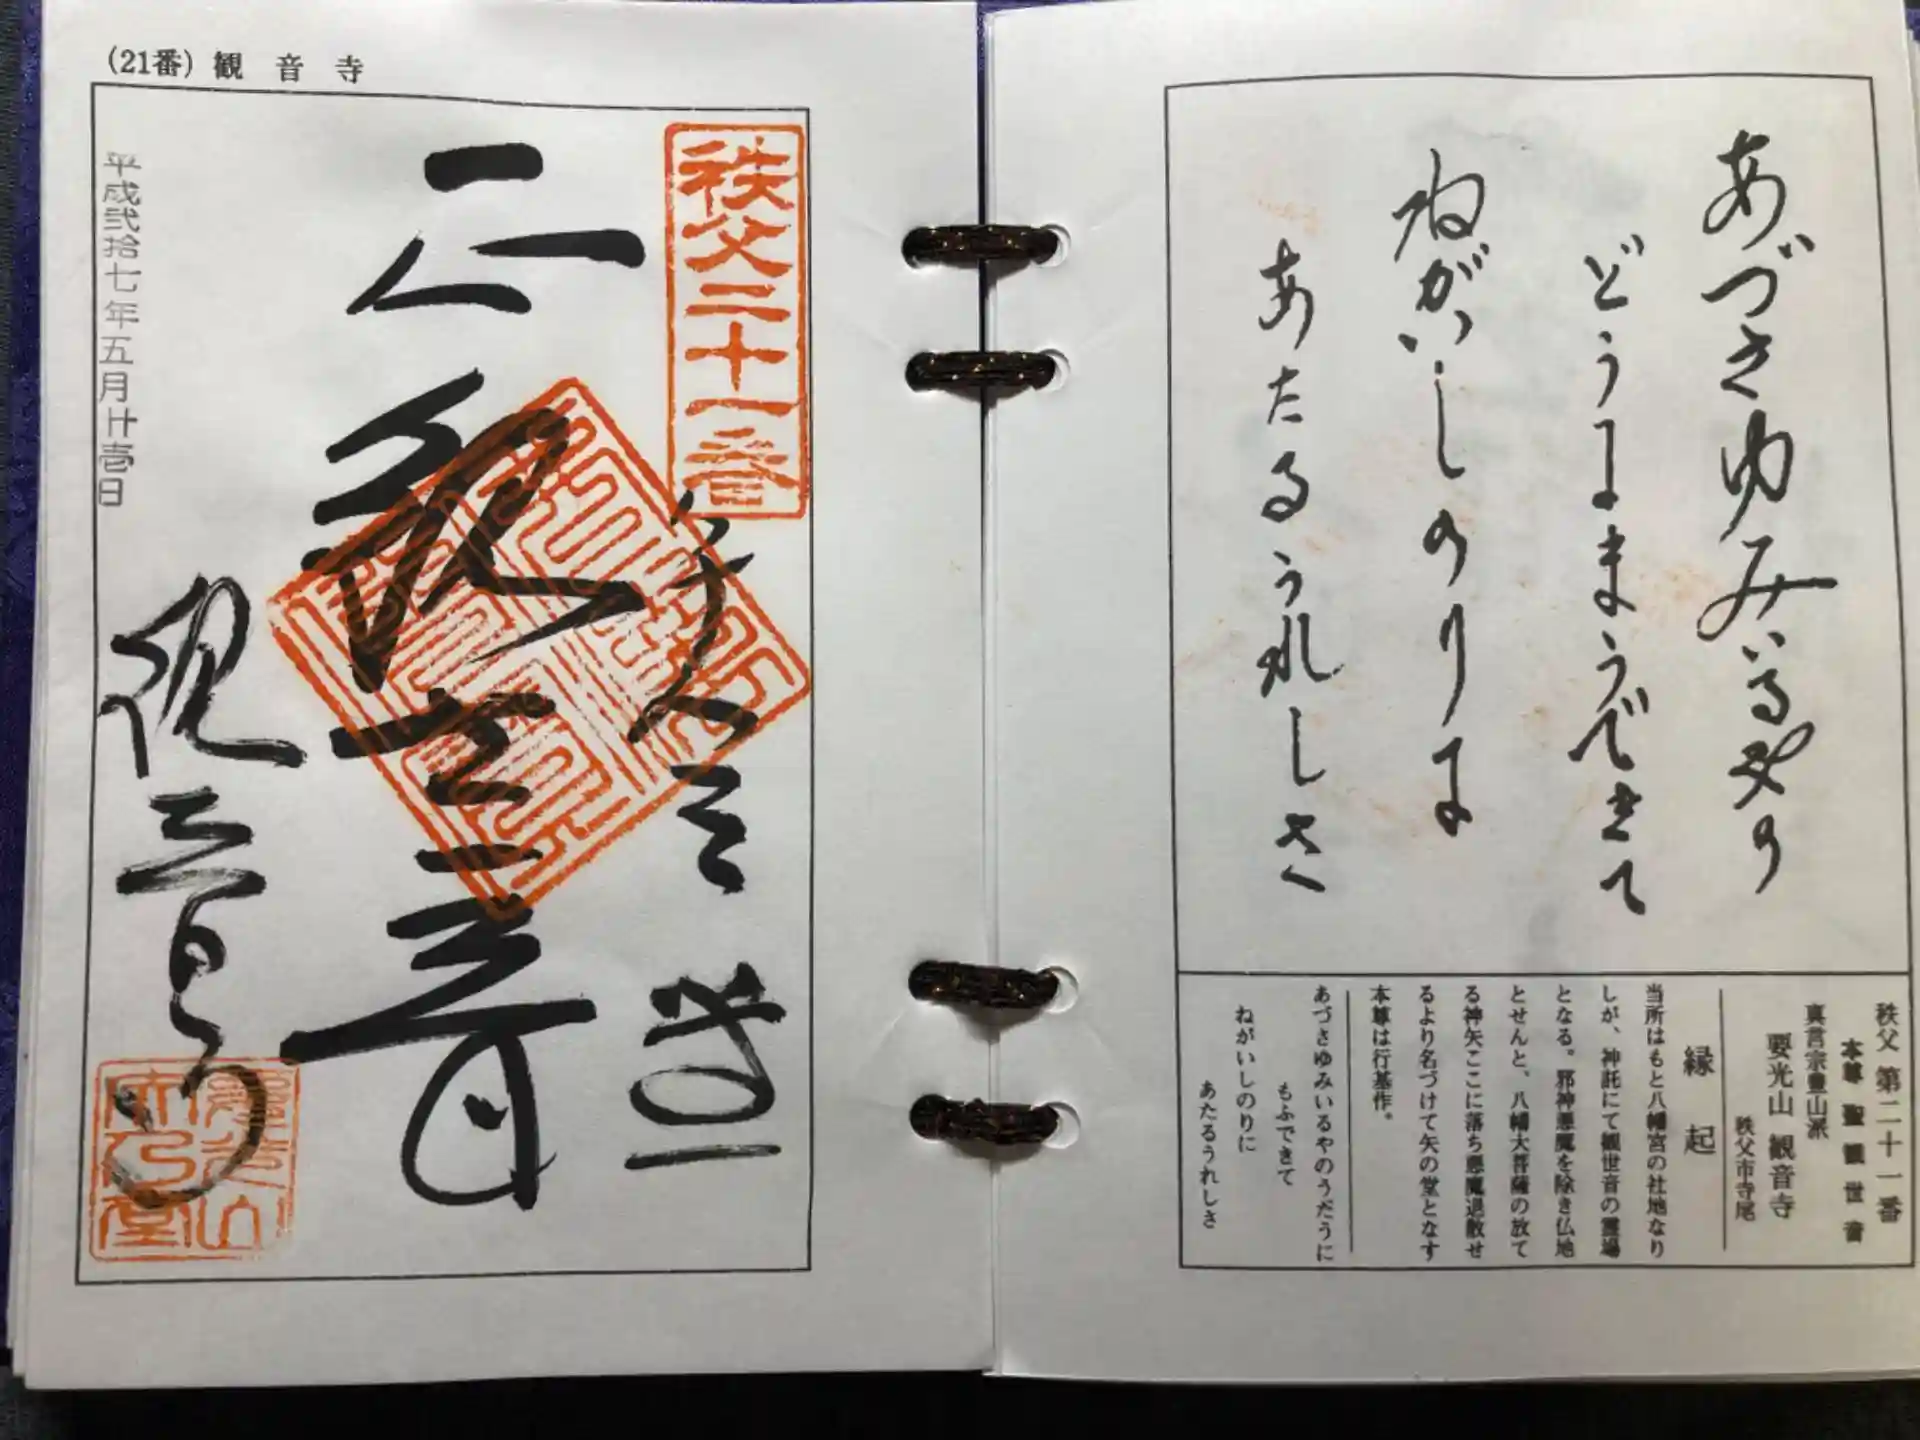 (21番) 観音寺
秩父二十一番
奉拝
聖観世音
観音寺
平成弐拾七年五月廿壱日
あづさゆみいるやの
どうにまうできて
ねがいしのりに
あたるうれしさ
秩父 第二十一番
本尊 聖観世音
真言宗豊山派
要光山 観音寺
秩父市寺尾
縁起
当所はもと八幡宮の社地なり
しが、神託にて観世音の霊場
となる。邪神悪魔を除き仏地
とせんと、八幡大菩薩の放て
る神矢ここに落ち悪魔退散せ
るより名づけて矢の堂となす
本尊は行基作。
あづさゆみいるやのうだうに
もふできて
ねがいしのりに
あたるうれしさ